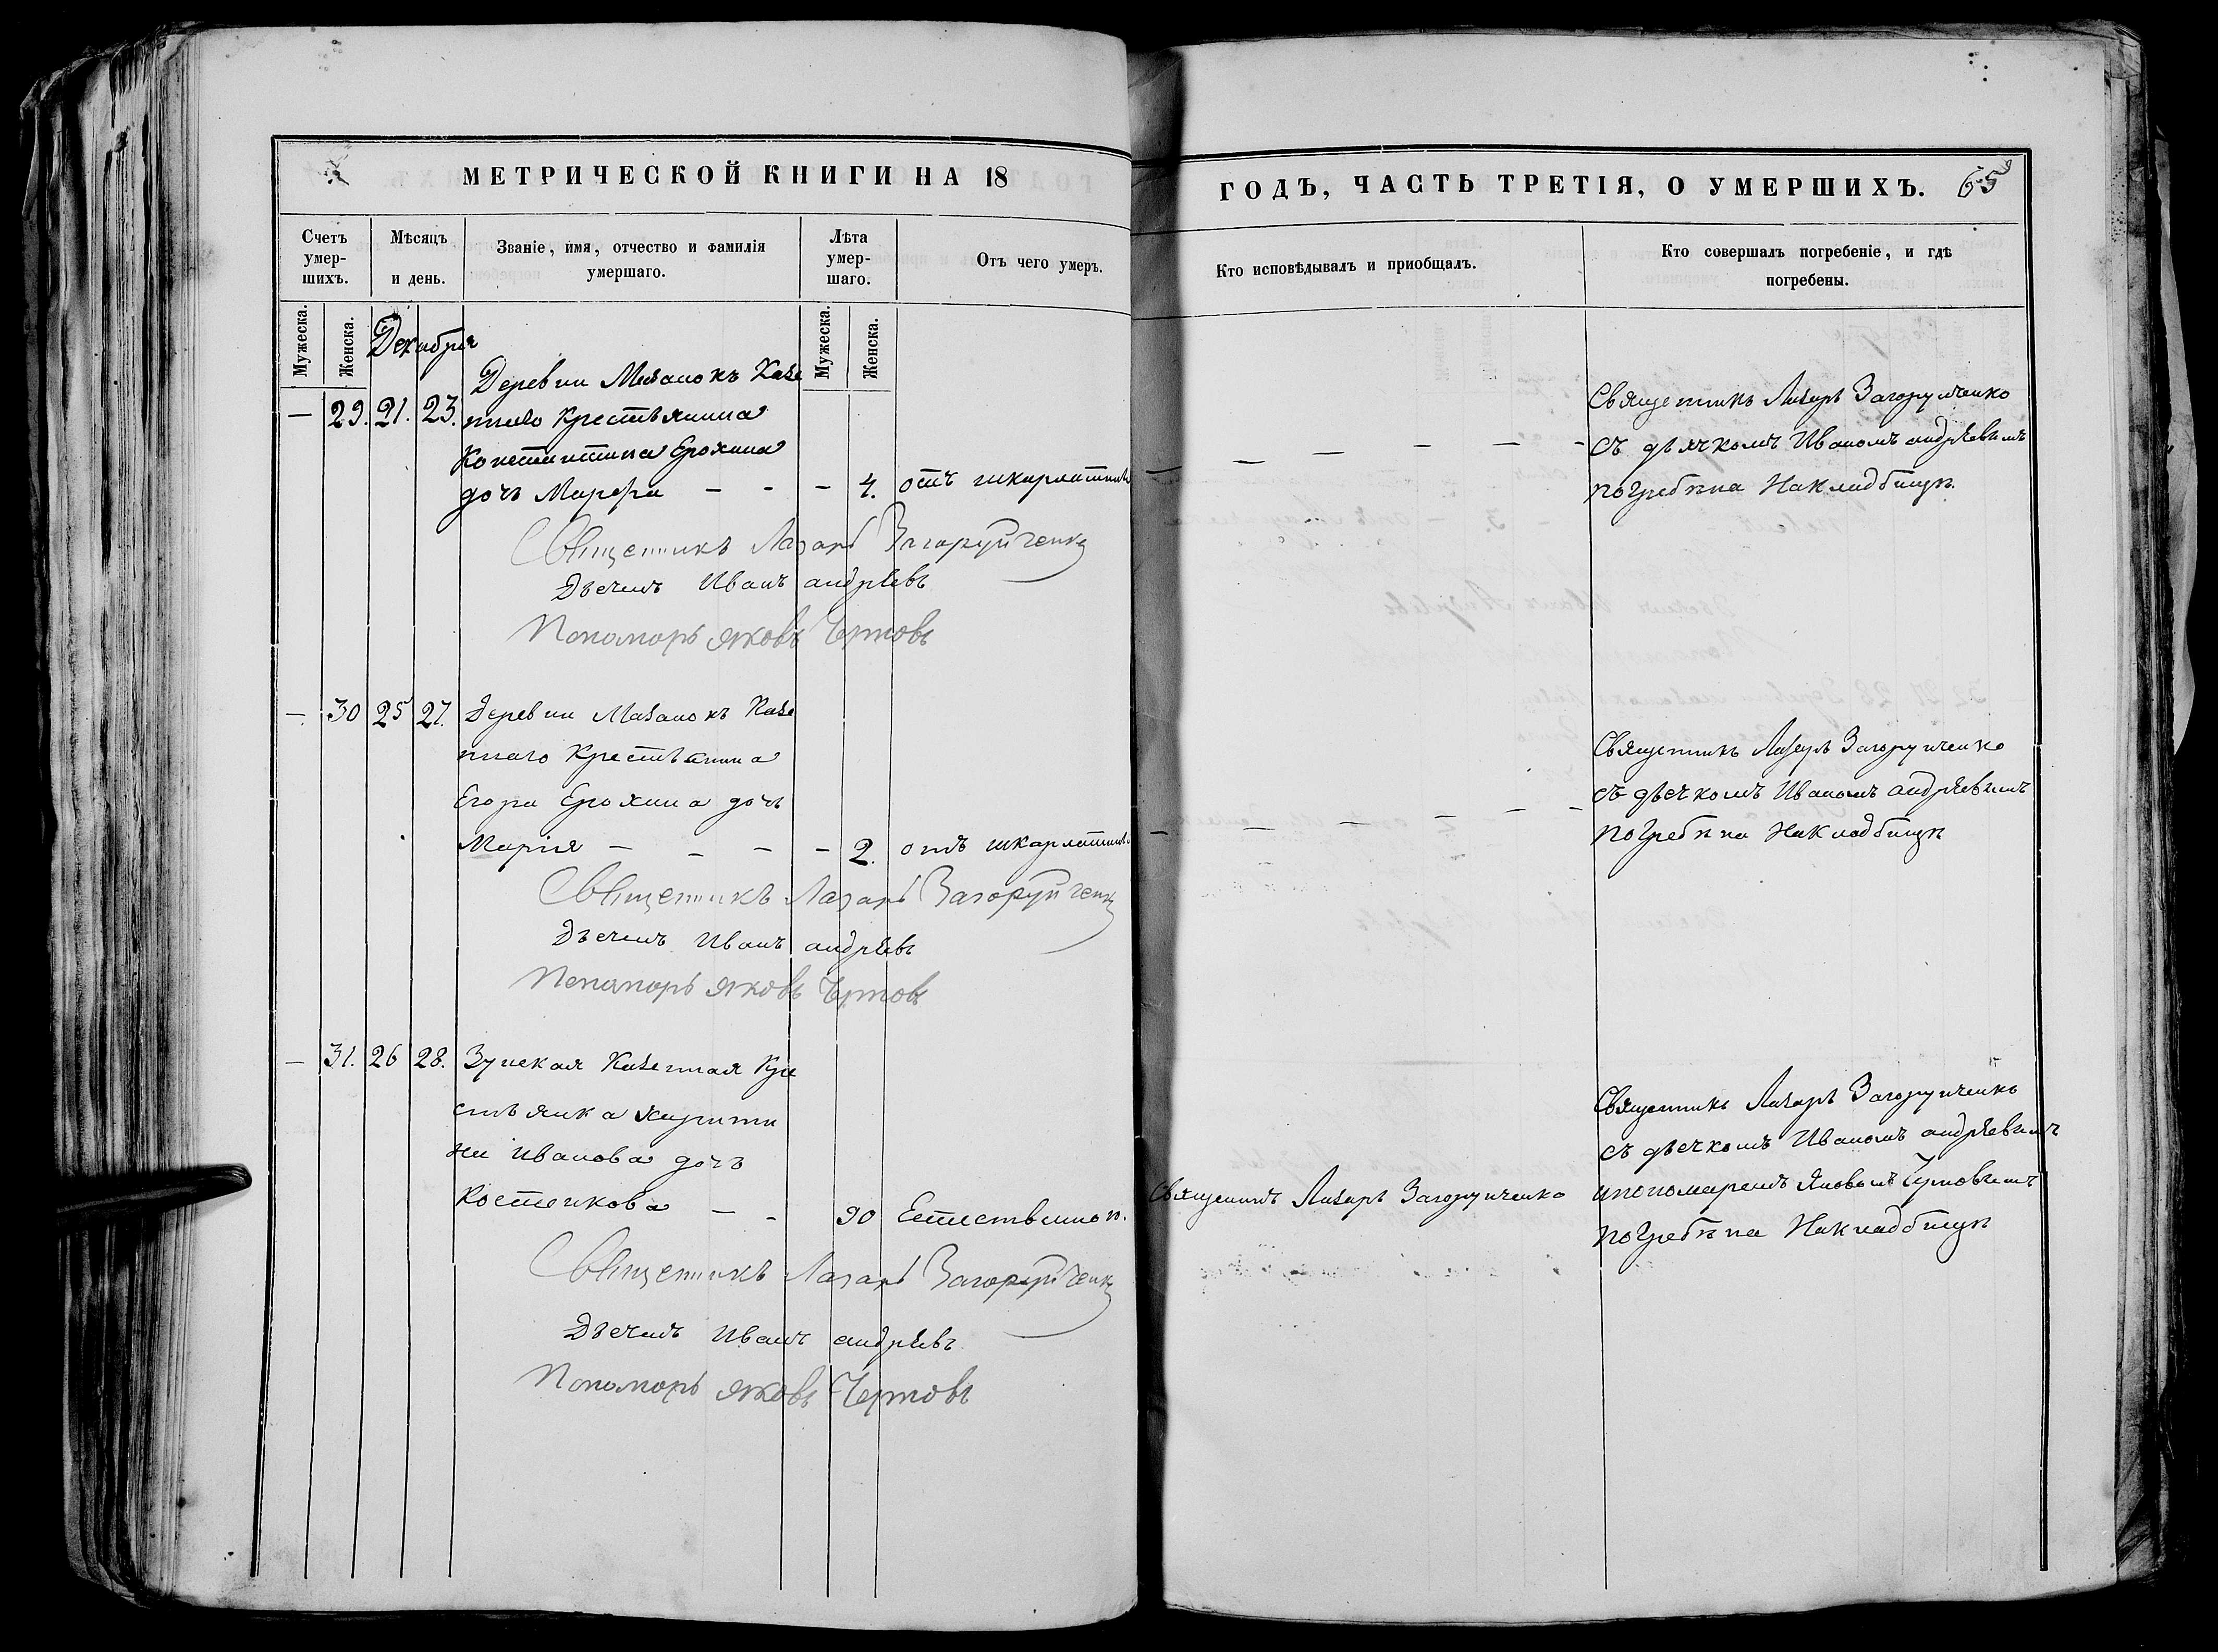 МЕТРИЧЕСКОЙ КНИГИ НА 18
ГОДЪ, ЧАСТЬ ТРЕТІЯ, О УМЕРШИХЪ. 65
Счетъ умер-шихъ.
Мѣсяцъ и день.
Званіе, имя, отчество и фамилія умершаго.
Лѣта умер-шаго.
Отъ чего умеръ.
Кто исповѣдывалъ и приобщалъ.
Кто совершалъ погребеніе, и гдѣ погребены.
Мужеска. Женска.
Мужеска. Женска.
Декабря
Деревни Мазанокъ Казе
— 29. 21. 23. ннаго Крестьянина
Константина Ерохина
дочь Марфа — - — 4. отъ шкарлатины
— — — — -
Священникъ Лазарь Загоруйченко
съ дьячкомъ Иваномъ андрѣевымъ
погребѣна На кладбищѣ.
Священникъ Лазарь Загоруйченко
Дьячекъ Иванъ андрѣевъ
Пономорь яковъ Чертовъ
— 30 25 27. Деревни Мазанокъ Казе
ннаго Крестьянина
Егора Ерохина дочь
Марія — - — — 2. отъ шкарлатины
— — — — — -
Священникъ Лазарь Загоруйченко
съ дьячкомъ Иваномъ андрѣевымъ
погребѣна На кладбищѣ
Священникъ Лазарь Загоруйченко
Дьячекъ Иванъ андрѣевъ
Пономорь яковъ Чертовъ
— 31. 26 28. Зуйская Казенная Кре
стьянка Харити
на Иванова дочь
Костенкова — - 90 Естественно
Священникъ Лазарь Загоруйченко
Священникъ Лазарь Загоруйченко
съ дьячкомъ Иваномъ андрѣевымъ
ипономаремъ Яковомъ Чертовымъ
погребѣна На кладбищѣ
Священникъ Лазарь Загоруйченко
Дьячекъ Иванъ андрѣевъ
Пономорь яковъ Чертовъ